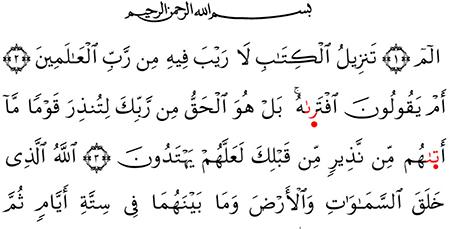 بسم الله الرحمن الرحيم
الٓمٓ ﴿١﴾ تَنزِيلُ الْكِتَابِ لَا رَيْبَ فِيهِ مِن رَّبِّ الْعَالَمِينَ ﴿٢﴾
أَمْ يَقُولُونَ افْتَرٰىهُ ۚ بَلْ هُوَ الْحَقُّ مِن رَّبِّكَ لِتُنذِرَ قَوْمًا مَّآ
أَتٰىهُم مِّن نَّذِيرٍ مِّن قَبْلِكَ لَعَلَّهُمْ يَهْتَدُونَ ﴿٣﴾ اللَّهُ الَّذِى
خَلَقَ السَّمَاوَاتِ وَالْأَرْضَ وَمَا بَيْنَهُمَا فِى سِتَّةِ أَيَّامٍ ثُمَّ